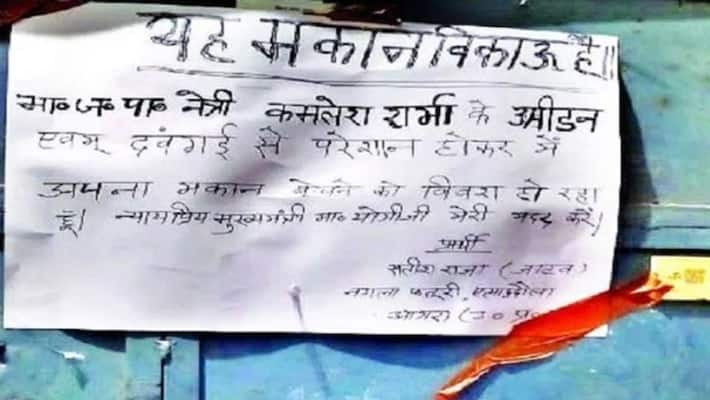 यह मकान बिकाऊ है।।
भा० ज० पा० नेत्री कमलेश शर्मा के उत्पीडन
एवम् दबंगई से परेशान होकर मैं
अपना मकान बेचने को विवश हो रहा
हूँ। न्यायप्रिय मुख्यमंत्री मा० योगीजी मेरी मदद करें।
प्रार्थी
सतीश राजा (जाटव)
नगला फतूरी, एत्माद्दौला
आगरा (उ० प्र०